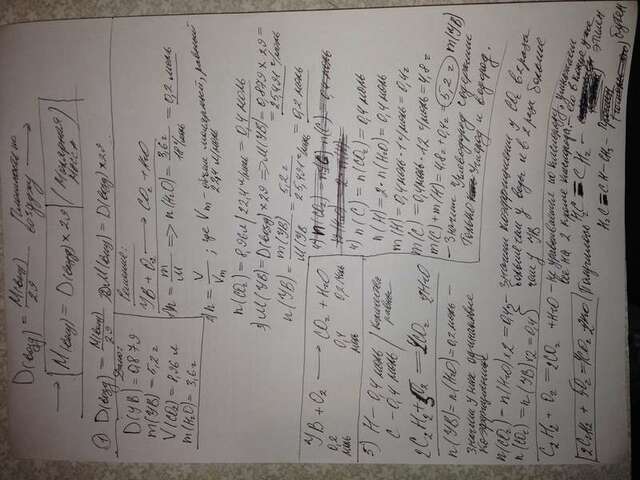 D(возд) = M(вещ)/29 Плотность по воздуху
→ M(вещ) = D(возд) × 29 (Молярная масса)
① D(возд) = M(вещ)/29 M(вещ) = D(возд) × 29
Дано:
D(УВ) = 0,879
m(УВ) = 5,2 г
V(CO₂) = 8,96 л
m(H₂O) = 3,6 г
Решение:
УВ + O₂ → CO₂ + H₂O
1) n = m/M => n(H₂O) = 3,6 г/18 г/моль = 0,2 моль
2) n = V/Vm ; где Vm - объем молярный, равный 22,4 л/моль
n(CO₂) = 8,96 л / 22,4 л/моль = 0,4 моль
3) M(УВ) = D(возд) × 29 => M(УВ) = 0,879 × 29 = 25,491 г/моль
n(УВ) = m(УВ)/M(УВ) = 5,2 г/25,491 г/моль = 0,2 моль
УВ + O₂ → CO₂ + H₂O
0,2 моль 0,4 моль 0,2 моль
4) n(C) = n(CO₂) = 0,4 моль
n(H) = 2 · n(H₂O) = 0,4 моль
m(H) = 0,4 моль · 1 г/моль = 0,4 г
m(C) = 0,4 моль · 12 г/моль = 4,8 г
m(C) + m(H) = 4,8 г + 0,4 г = 5,2 г m(УВ)
- Значит Углеводород содержит только Углерод и водород.
5) H - 0,4 моль
C - 0,4 моль
количества равны
2C₂H₂ + 5O₂ = 4CO₂ 2H₂O
n(УВ) = n(H₂O) = 0,2 моль -
значит у них одинаковые
коэффициенты
n(CO₂) = n(H₂O) × 2 = 0,4 - значит коэффициент у CO₂ в 2 раза
n(CO₂) = n(УВ) × 2 = 0,4 больше чем у воды и в 2 раза больше
чем у УВ
C₂H₂ + O₂ = 2CO₂ + H₂O - не уравнивается по кислороду, умножаем
все на 2 кроме кислорода - его в конце
2C₂H₂ + 5O₂ = 4CO₂ 2H₂O Получилось
этилен
H₂C = CH - CH₃ -
бутен